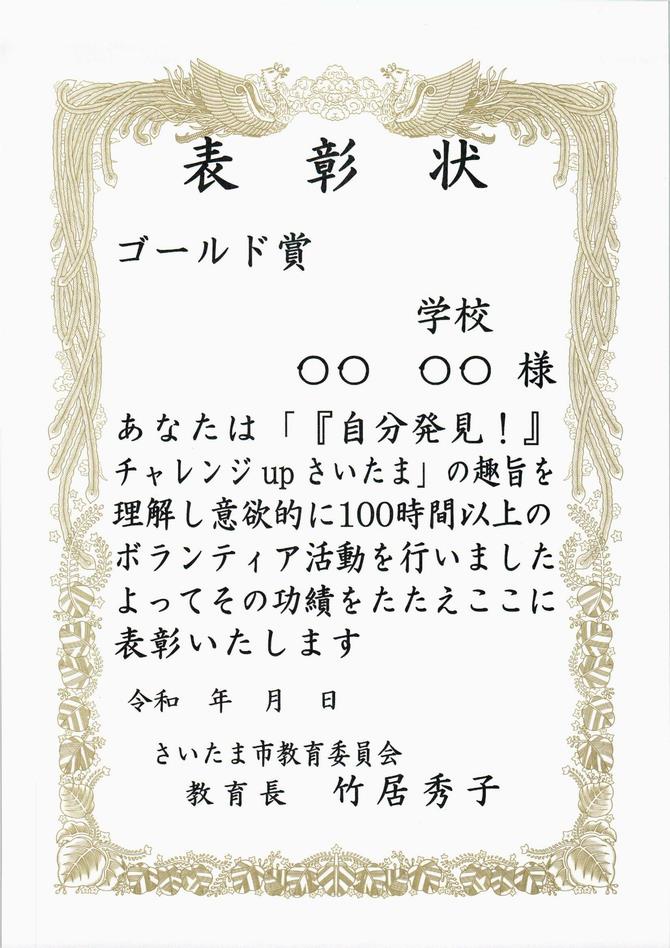 表彰状
ゴールド賞
学校
○○　○○ 様
あなたは「『自分発見！』
チャレンジupさいたま」の趣旨を
理解し意欲的に100時間以上の
ボランティア活動を行いました
よってその功績をたたえここに
表彰いたします
令和　年　月　日
さいたま市教育委員会
教育長　竹居秀子